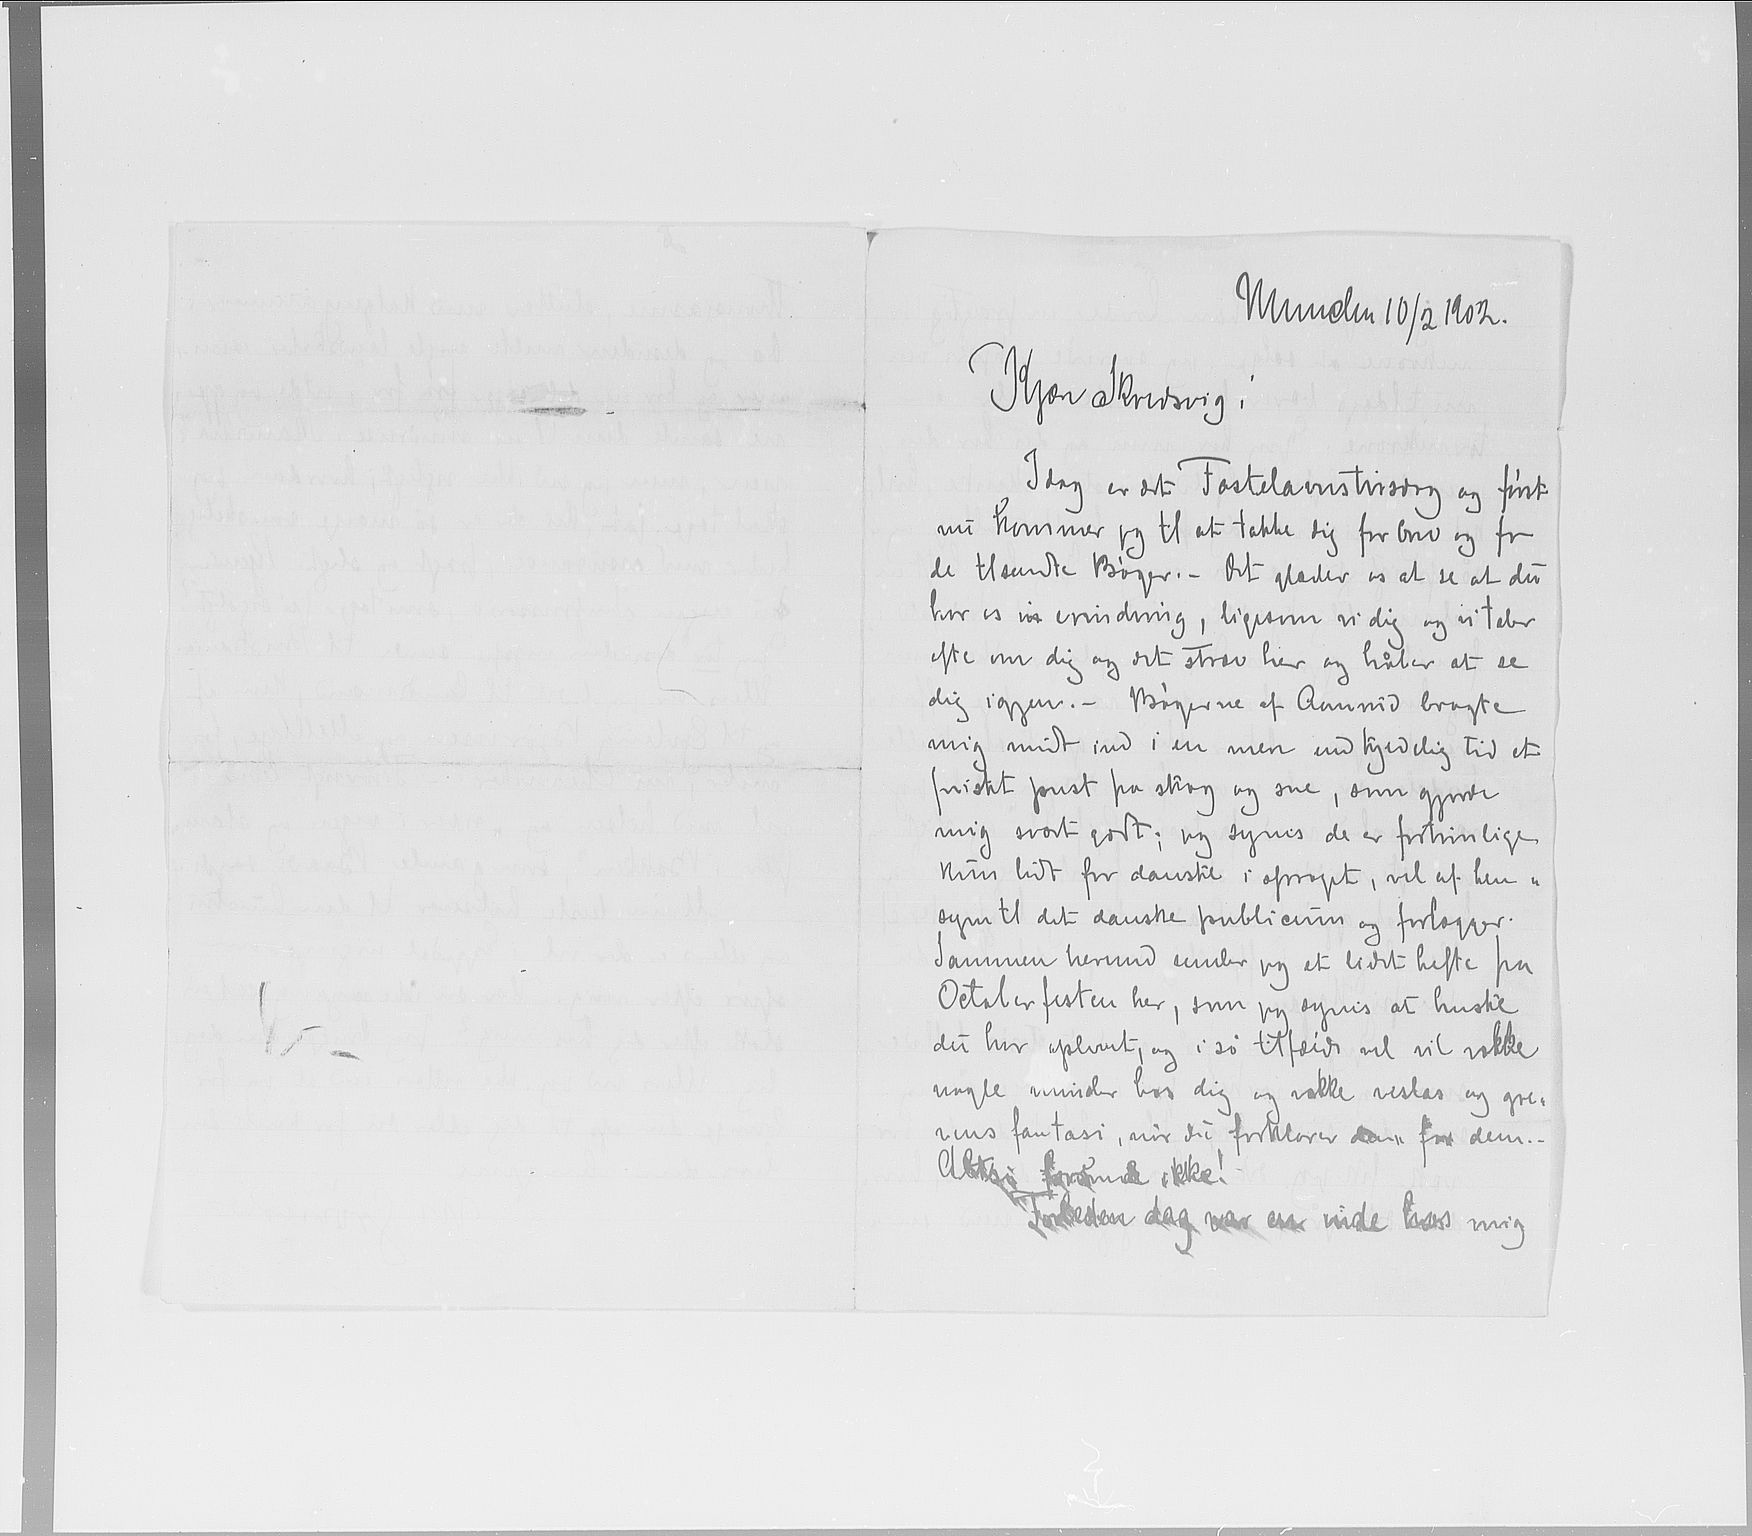 München 10/2 1902.
Kjære Skredsvig!
Idag er det Fastelavnstirsdag og først
nu kommer jeg til at takke dig for brev og for
de tilsendte Bøger. – Det glæder os at se at du
har os i erindring, ligesom vi dig og vi taler
ofte om dig og det strev her og håber at se
dig igjen. – Bøgerne af Aanrud bragte
mig midt ind i en mer end kjedelig tid et
friskt pust fra skog og sne, som gjorde
mig svært godt; jeg synes de er fortrinlige
kun lidt for danske i sproget, vel af hen„
syn til det danske publicum og forlægger.
Sammen hermed sender jeg et lidet hefte fra
Octoberfesten her, som jeg synes at huske
du har oplevet, og i så tilfælde vel vil vække
nogle minder hos dig og vække veslas og gre„
vens fantasi, når du forklarer den for dem. –
Altså ikke!
Forleden dag var en inde hos mig